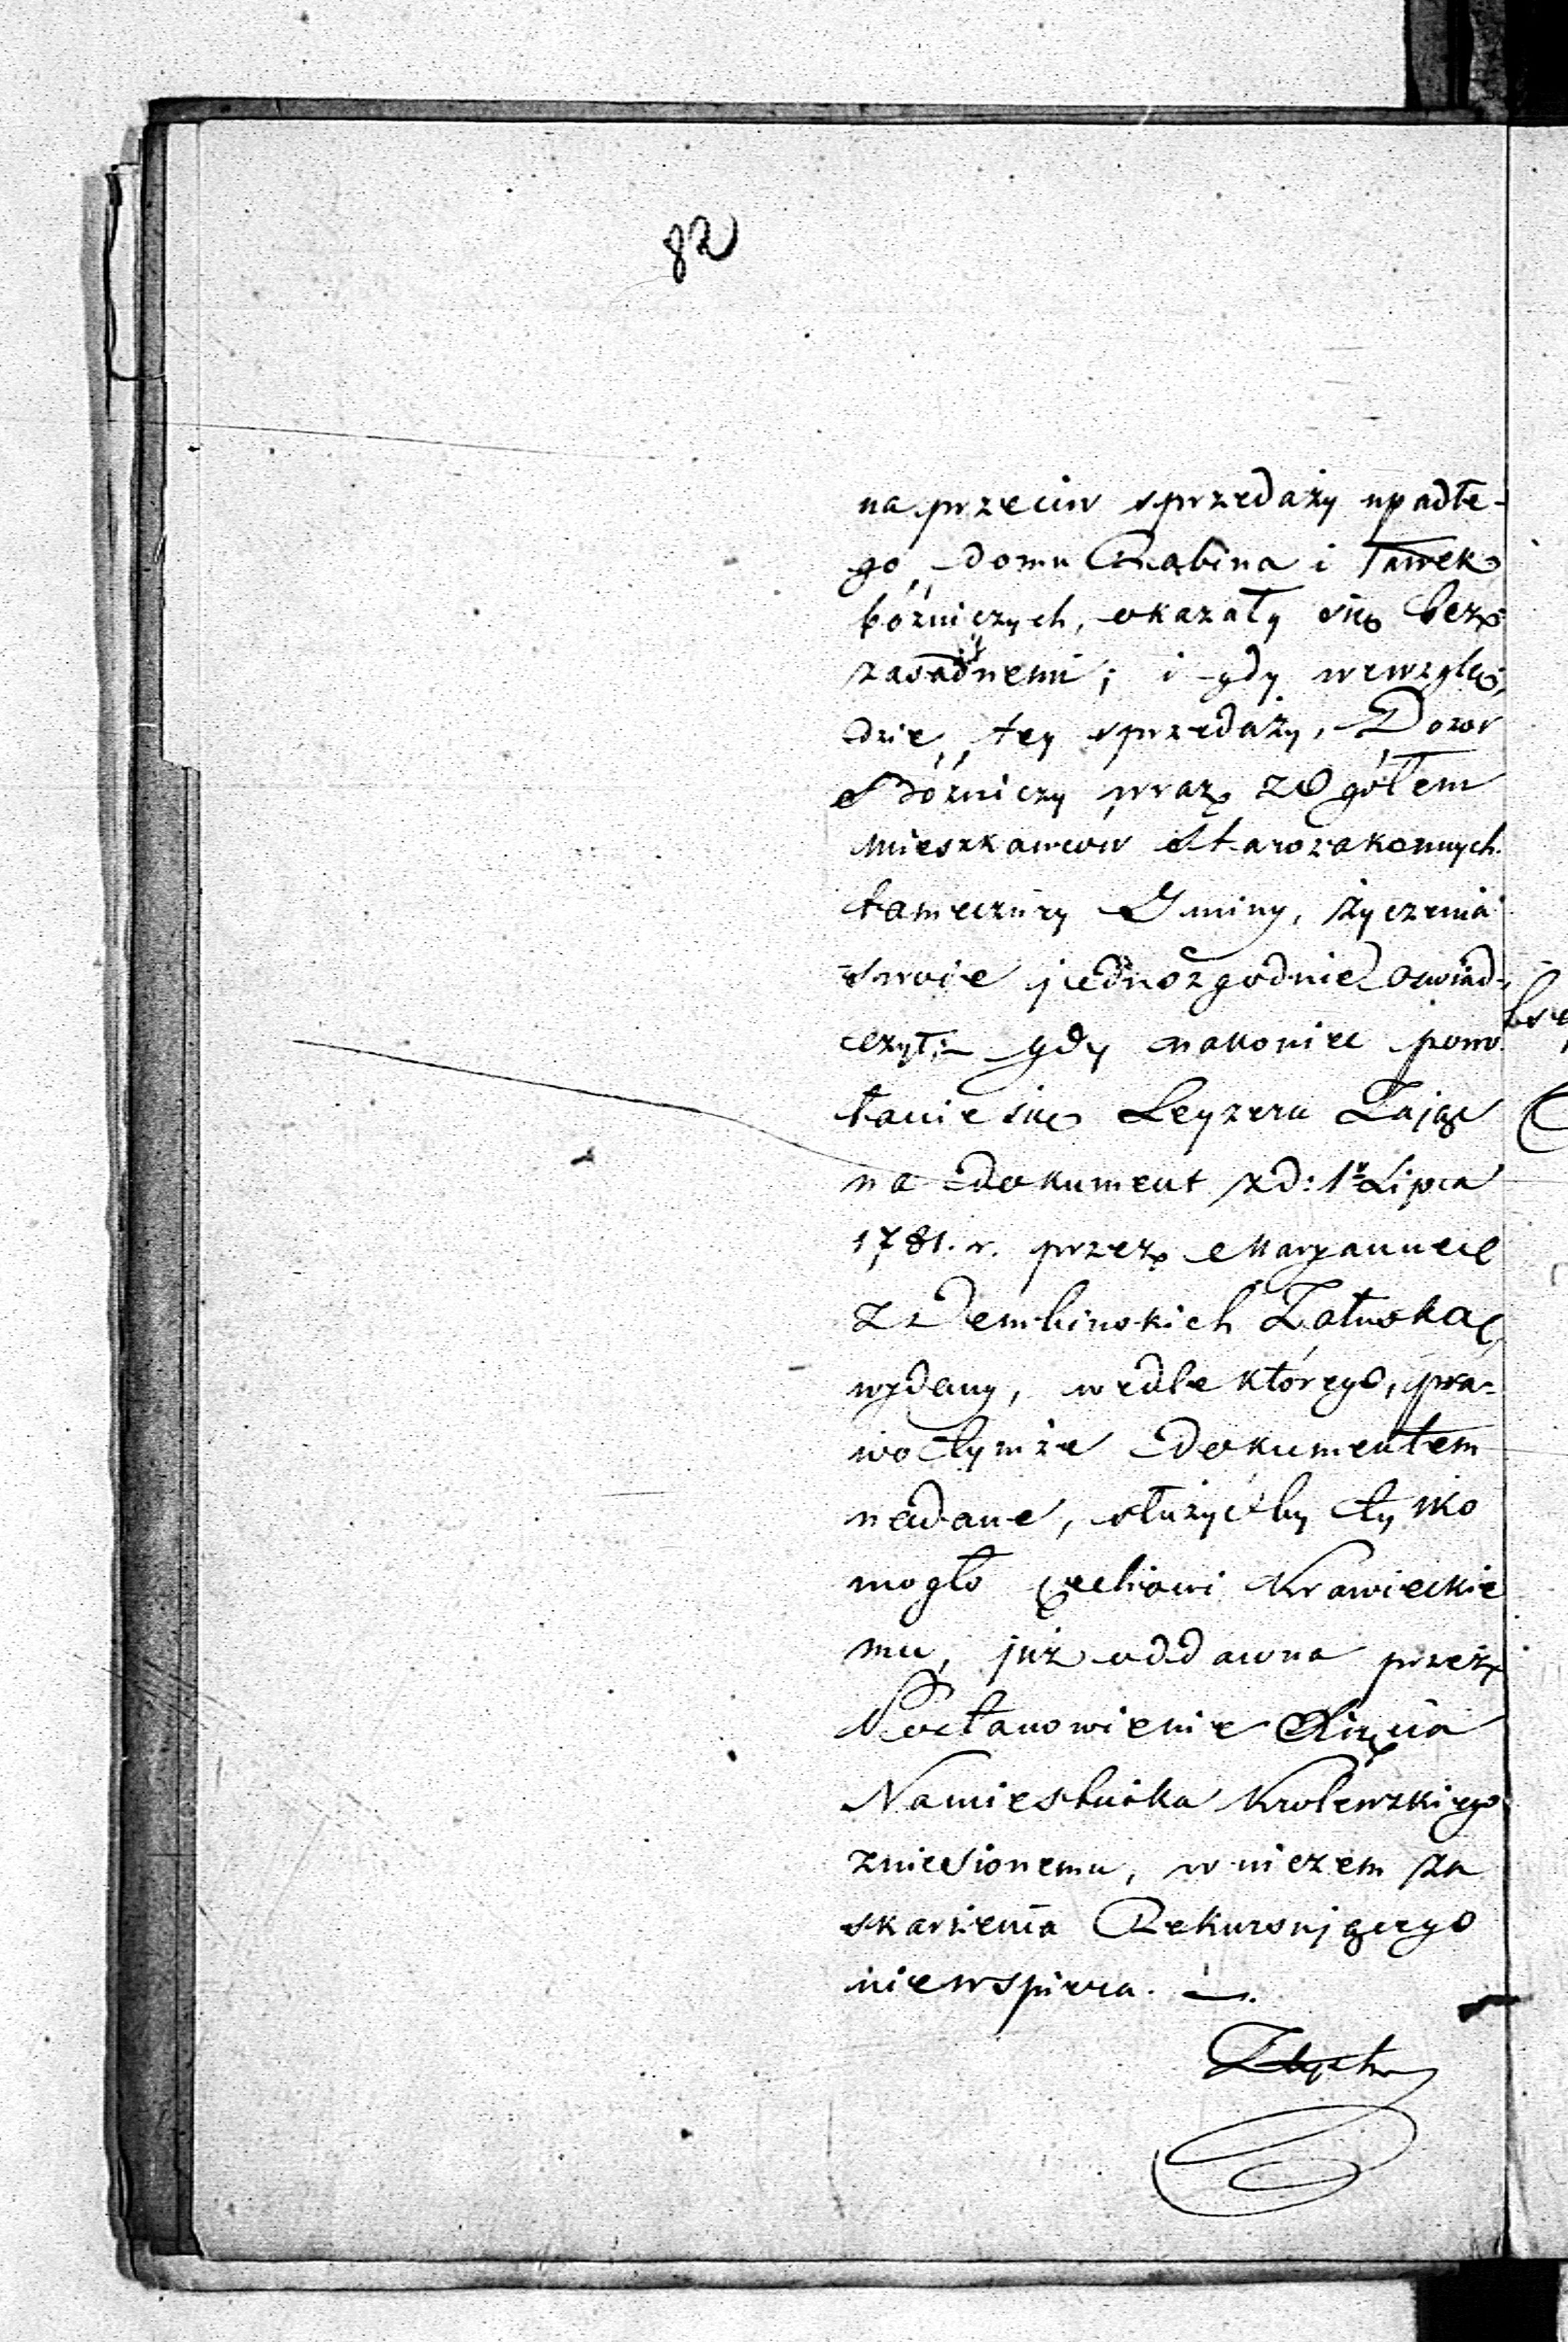 82
na przeciw sprzedaży upadłe-
go, domu Rabina i Ławek
bóżniczych, okazały się bez
zasadnemi; i gdy wewzglę-
dzie, tey sprzedaży, Dozor
Bóżniczy wraz z Ogółem
Mieszkancow Starozakonnych
tameczney Gminy, życzenia
swoie jednozgodnie oswiad-
czył;- gdy nakoniec powo
łanie się Leyzera Zając
na dokument z d: 1º Lipca
1781. r. przez Maryannę
z Dembinskich Załuską
wydany, wedle którego, pra-
wo tymże dokumentem
nadane, służyćby tylko
mogło cechowi Krawieckie
mu, już oddawna przez
Postanowienie Xięcia
Namiestnika Krolewskiego
zniesionemu, w niczem za
skarżenia Rekursującego
niewspiera. —.